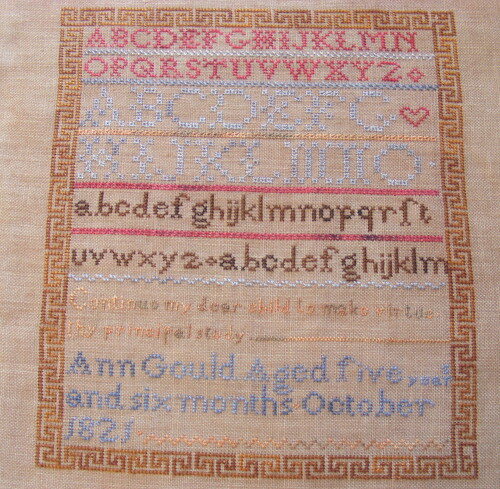 ABCDEFGHIJKLMN
OPQRSTUVWXYZ
ABCDEFG
HIJKLMNO
abcdefghijklmnopqrſt
uvwxyz abcdefghijklm
Continue my dear child to make virtue
thy principal study
Ann Gould Aged five year
and six months October
1821